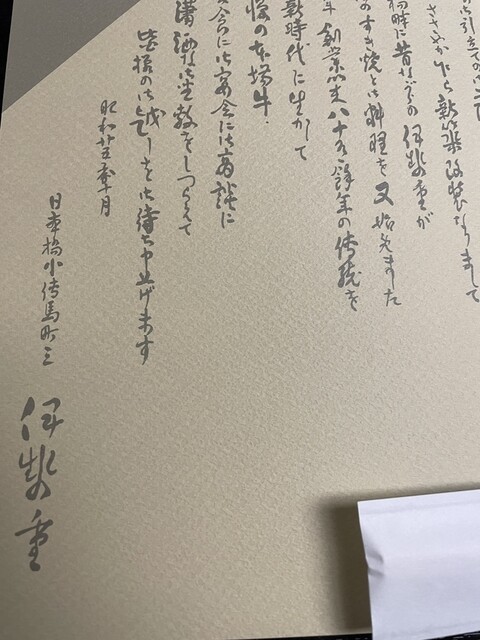 ささやか乍ら新築改装なりまして
時に昔ながらの伊勢重が
のすき焼と御料理を又始めました
創業以来八十有余年の伝統を
新時代に生かして
慢の本場牛、
会合に御宴会に御商談に
瀟洒な御座敷をしつらえて
皆様の御越しを御待ち申上げます
昭和廿五年 月
日本橋小伝馬町三
伊勢重